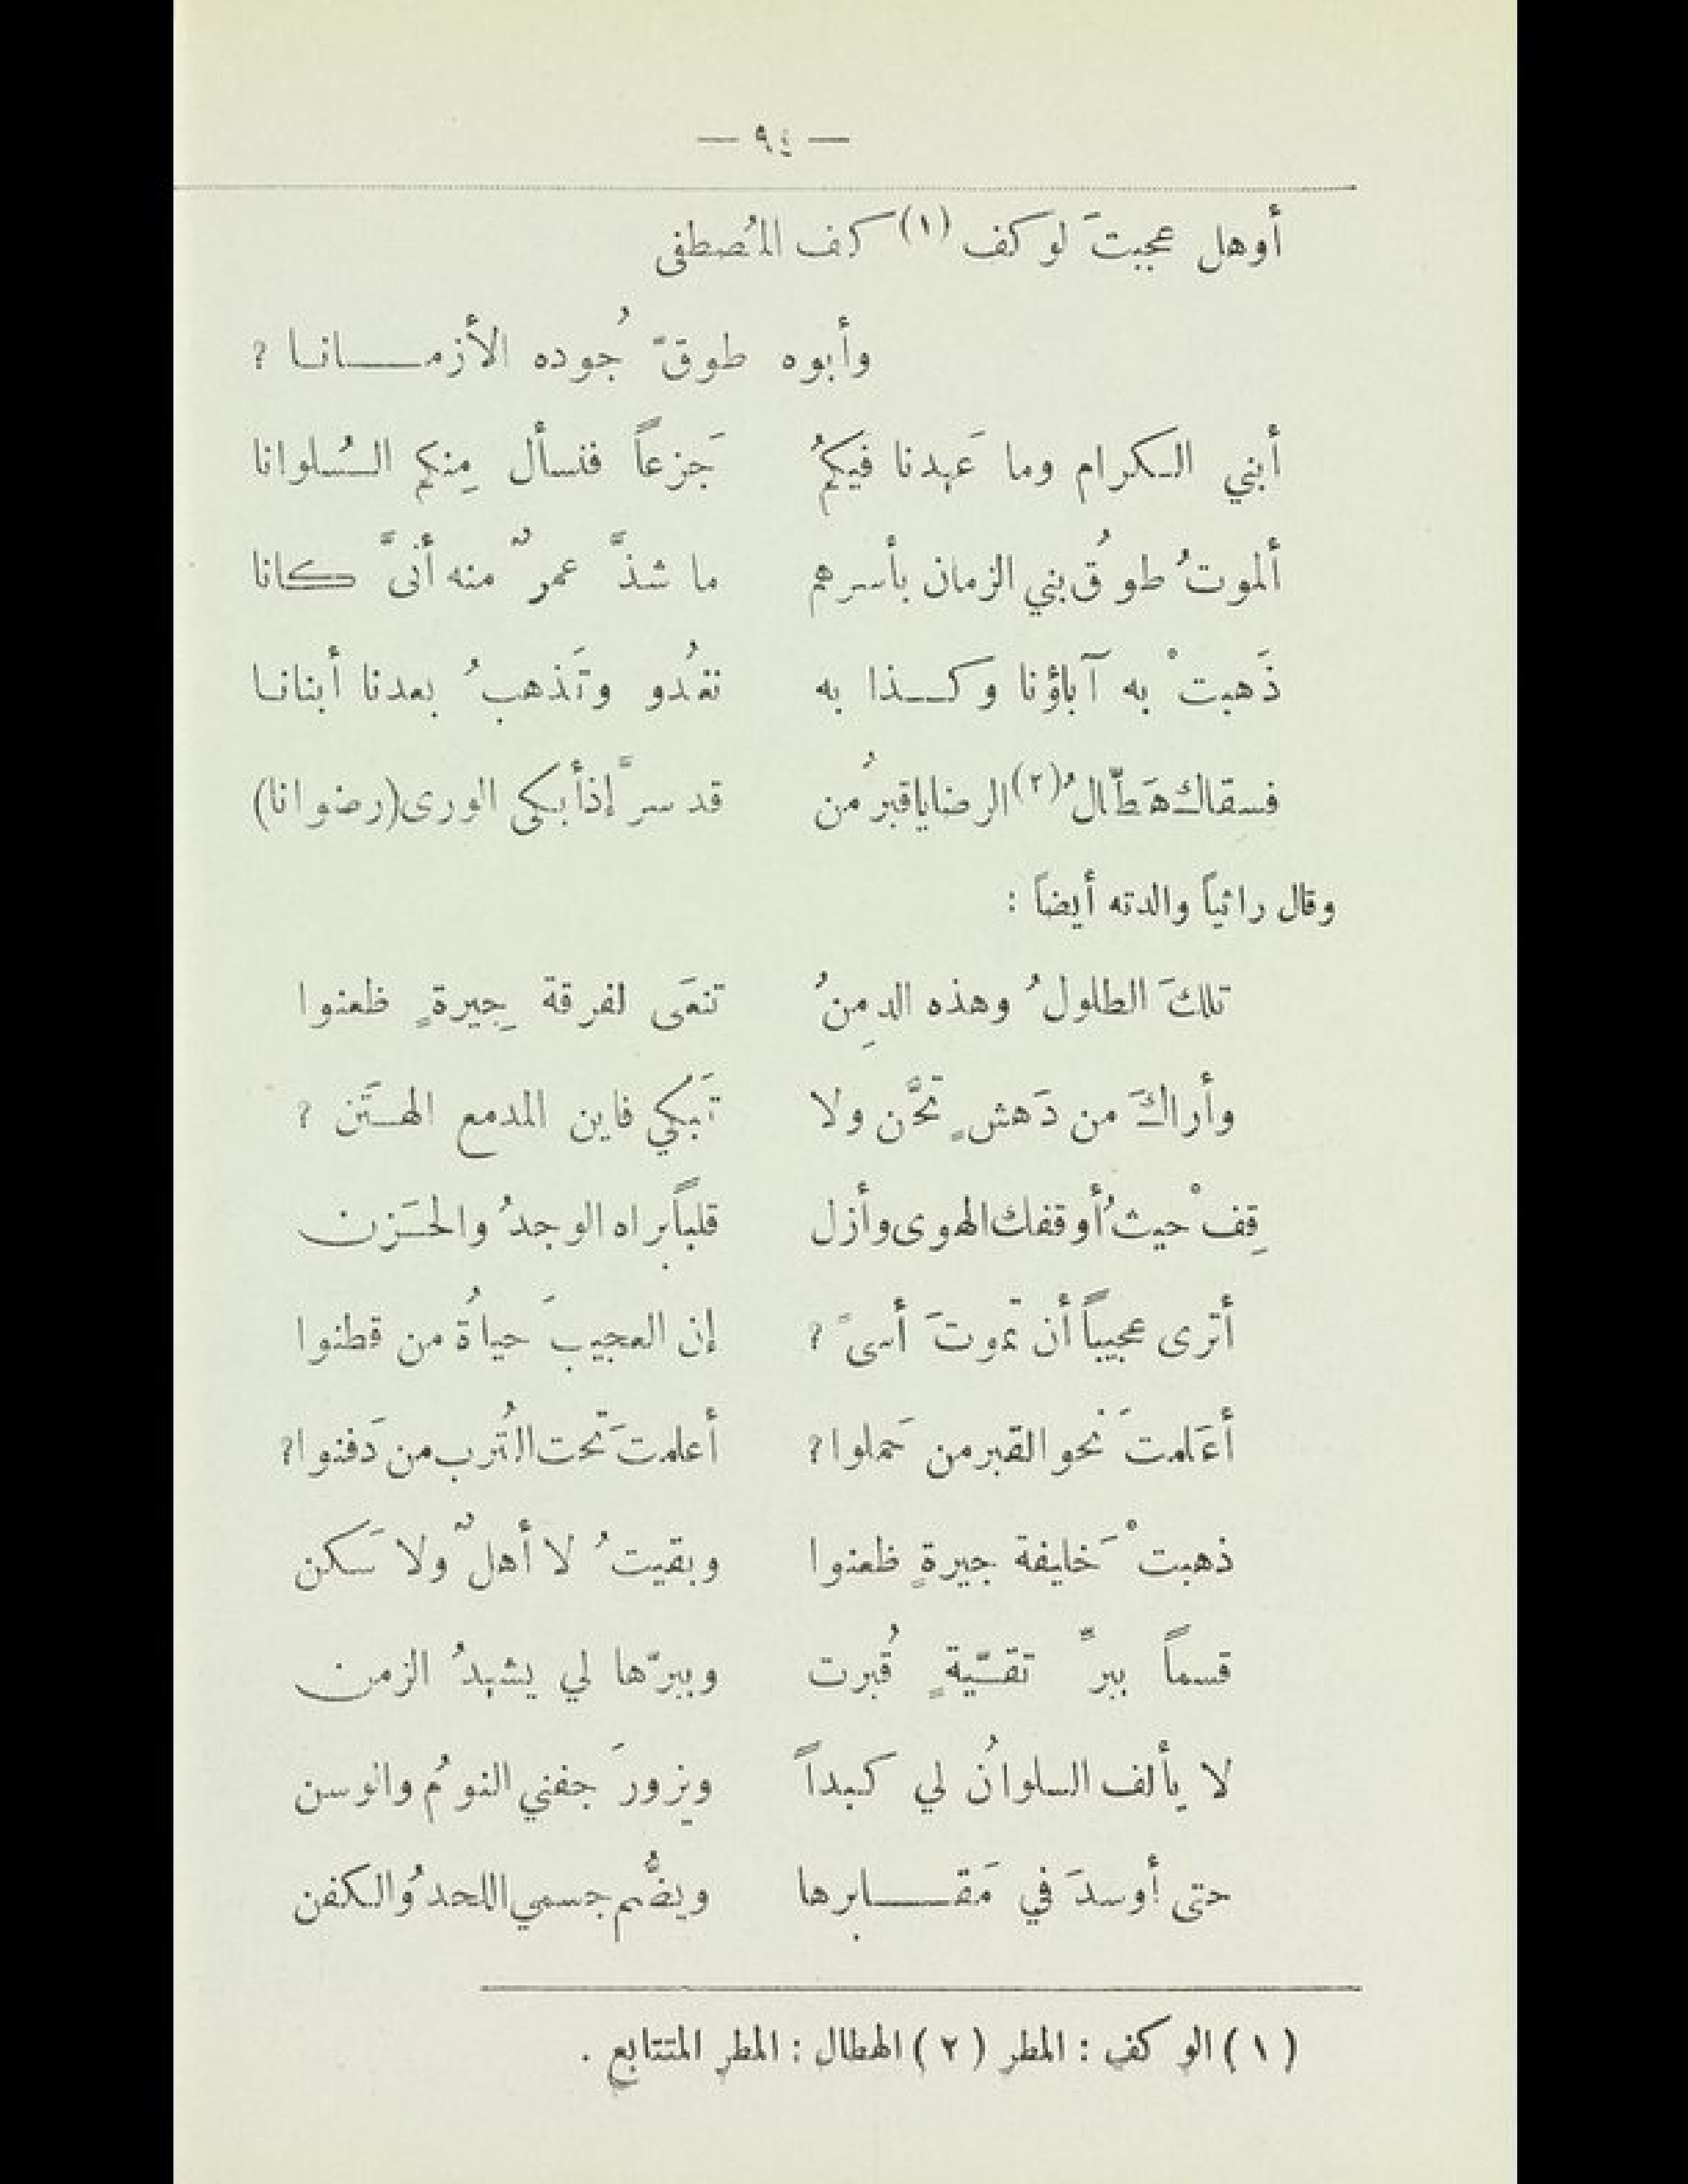 — ٩٤ —
أوهل عجبتَ لوكف (١) كف المُصطفى
وأبوه طوقّ جُوده الأزمـــانـا ?
أبني الكرام وما عَهدنا فيكمُ جَزعاً فنسأل مِنكم السُلوانا
ألموتُ طوقُ بني الزمان بأسرهم ما شذَّ عمرٌ منه أنىَّ كانا
ذَهبتْ به آباؤنا وكـــذا به نغدُو وتَذهبُ بعدنا أبنانـا
فسقاك هَطّالُ (٢) الرضا يا قبرُ من قد سرَّ إذ أبكى الورى (رضوانا)
وقال راثياً والدته أيضاً :
تلكَ الطلولُ وهذه الدِمنُ تنعَى لفرقة جِيرةٍ ظعنوا
وأراكَ من دَهشٍ تحَّن ولا تَبكي فاين المدمع الهـَتن ?
قِفْ حيثُ أوقفك الهوى وأزل قلباً براه الوجدُ والحَـزن
أترى عجيباً أن تموتَ أسىً ? إن العجيبَ حياةُ من قطنوا
أعَلمتَ نحو القبر من حَملوا ? أعلمتَ تحت التُرب من دَفنوا ?
ذهبتْ خَليفة جيرةٍ ظعنوا وبقيتُ لا أهلٌ ولا سَكن
قسماً ببرِّ تقـّيةٍ قُبرت وببرّها لي يشهدُ الزمن
لا يألف السلوانُ لي كبداً ويزورَ جفني النومُ والوسن
حتى أوسدَ في مَقـــابرها ويضُّم جسمي اللحدُ والكفن
(١) الوكف : المطر (٢) الهطال : المطر المتتابع .